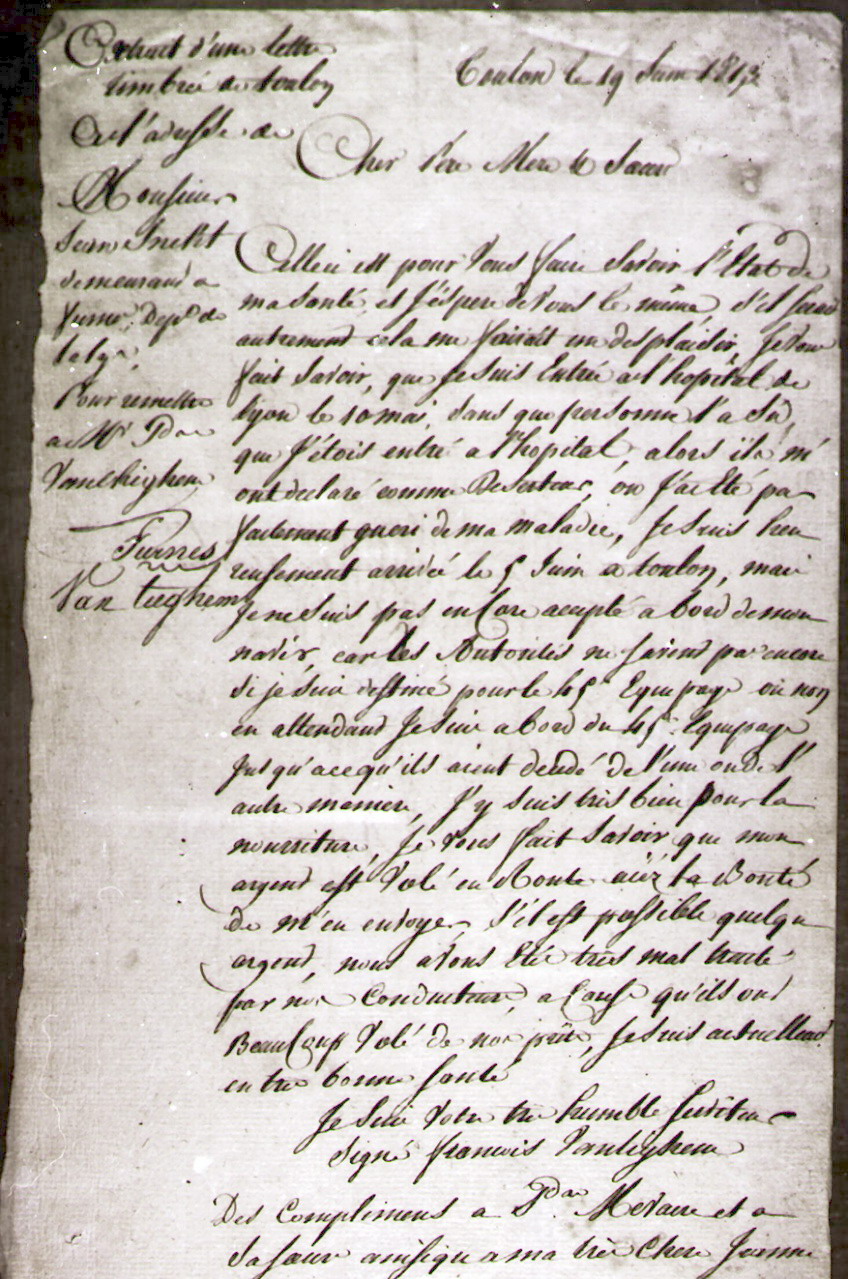 Extrait d'une lettre
timbrée de toulon
et l'adresse de
Monsieur
demeurand a
furne, Dep.t de
la lys,
Pour remettre
a Mr P.re
Vantieghem
Furnes
Van tieghem
Toulon le 19 Juin 1813
Cher Pére Mere & Soeur
Celleci est pour Vous faire Savoir l'Etat de
ma Santé, et J'éspere de Vous le même, s'il serai
autrement cela me fairait un desplaisir, Je Vous
fait Savoir, que Je suis Entré a l'hopital de
lyon le 10 mai, sans que personne l'a Sû,
que J'étois entré a l'hopital, alors ils m'
ont declaré comme Deserteur, où J'ai Eté par
faitement gueri de ma maladie, Je suis heu
reusement arrivé le 5 Juin a toulon, mais
Je ne suis pas encore accepté a bord de mon
navir, car les Autorités ne savent pas encore
Si je suis destiné pour le 45e Equipage ou non
en attendant Je suis a bord du 45e Equipage
Jusqu'a ce qu'ils aient decidé de l'une ou de l'
autre maniere, J'y suis tres bien pour la
nourriture, Je Vous fait Savoir que mon
argent est Volé en Route aiéz la Bonté
de m'en envoyer, S'il est possible quelqu
argent, nous avons Eté très mal traité
par nos Conducteurs, a Cause qu'ils ont
Beaucoup Volé de nos prêt, Je suis actuellemt
en tres bonne santé
Je suis Votre tres humble Serviteur
Signé francois Vantieghem
Des Complimens a P.re Mevaere et a
Sa Sœur ainsi qu a ma très Chere Jeanne